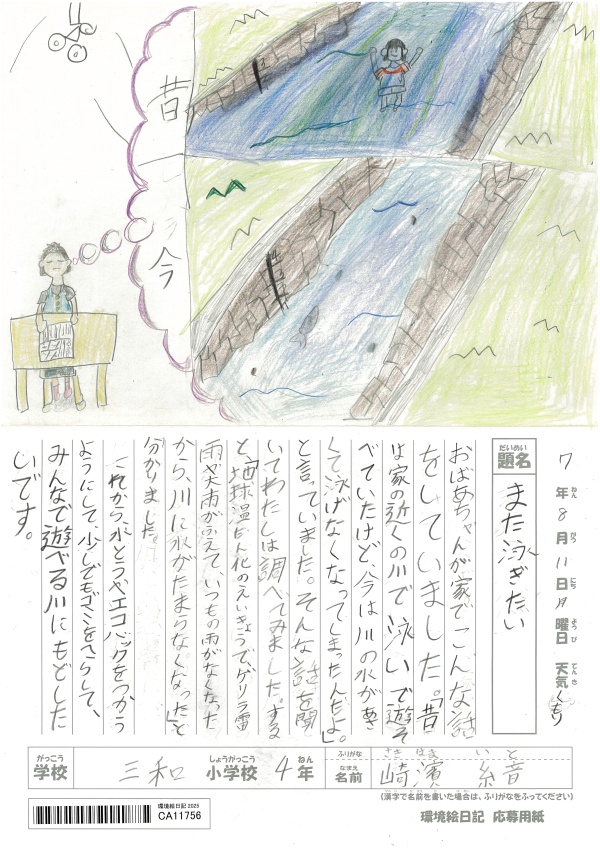 昔
今
7年8月11日月曜日 天気くもり
ねん がつ にち ようび てんき
だいめい
題名
また泳ぎたい
おばあちゃんが家でこんな話
をしていました。「昔
は家の近くの川で泳いで遊そ
べていたけど、今は川の水があさ
くて泳げなくなってしまったんだよ。」
と言っていました。そんな話を聞
いてわたしは調べてみました。する
と、「地球温だん化のえいきょうで、ゲリラ雷
雨や大雨がふえて、いつもの雨がなくなった
から、川に水がたまらなくなった」と
分かりました。
これから、水とうやエコバックをつかう
ようにして、少しでもゴミをへらして、
みんなで遊べる川にもどした
いです。
がっこう
学校
三和
しょうがっこう
小学校
4
ねん
年
ふりがな
さき はま いと
なまえ
名前
崎濱 絃音
(漢字で名前を書いた場合は、ふりがなをふってください)
環境絵日記2025
CA11756
環境絵日記 応募用紙